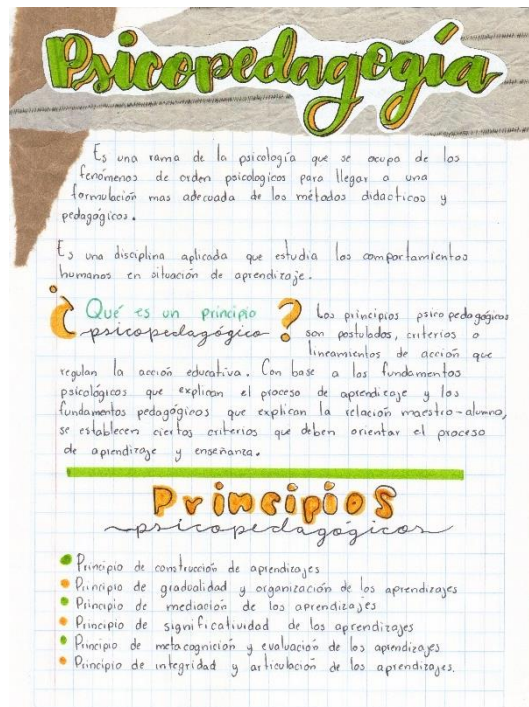 Psicopedagogía
Es una rama de la psicología que se ocupa de los
fenómenos de orden psicologicos para llegar a una
formulación mas adecuada de los métodos didacticos y
pedagógicos.
Es una disciplina aplicada que estudia los comportamientos
humanos en situación de aprendizaje.
¿Qué es un principio
psicopedagógico?
Los principios psicopedagógicos
son postulados, criterios o
lineamientos de acción que
regulan la acción educativa. Con base a los fundamentos
psicológicos que explican el proceso de aprendizaje y los
fundamentos pedagógicos que explican la relación maestro-alumno,
se establecen ciertos criterios que deben orientar el proceso
de aprendizaje y enseñanza.
Principios
psicopedagógicos
Principio de construcción de aprendizajes
Principio de gradualidad y organización de los aprendizajes
Principio de mediación de los aprendizajes
Principio de significatividad de los aprendizajes
Principio de metacognición y evaluación de los aprendizajes
Principio de integridad y articulación de los aprendizajes.